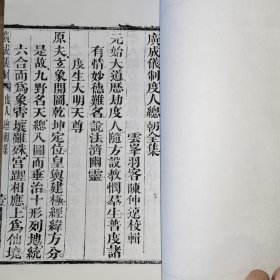 廣成儀制度人總朝全集
雲峯羽客陳仲遠校輯
元始大道歷劫度人隨方設教憫羣生普度諸
有情妙德難名說法濟幽靈
度生大明天尊
原夫玄象開圖乾坤定位皇輿建極經緯方分
是故九野名天總八圖而垂治十形列地統
六合而為象霄壤雖殊宮躔相應上為仙境
廣成儀制 度人總朝集